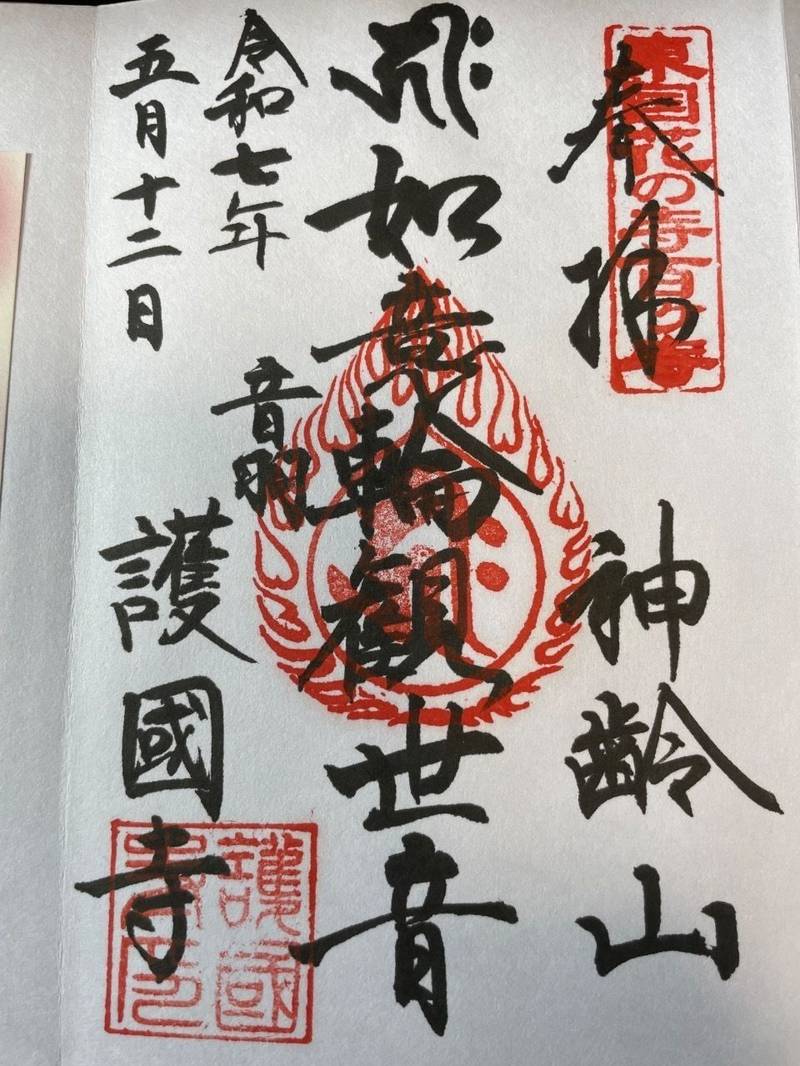 奉拝
東国花の寺百ヶ寺
神齢山
如意輪観世音
音羽
護國寺
護國寺印
令和七年
五月十二日